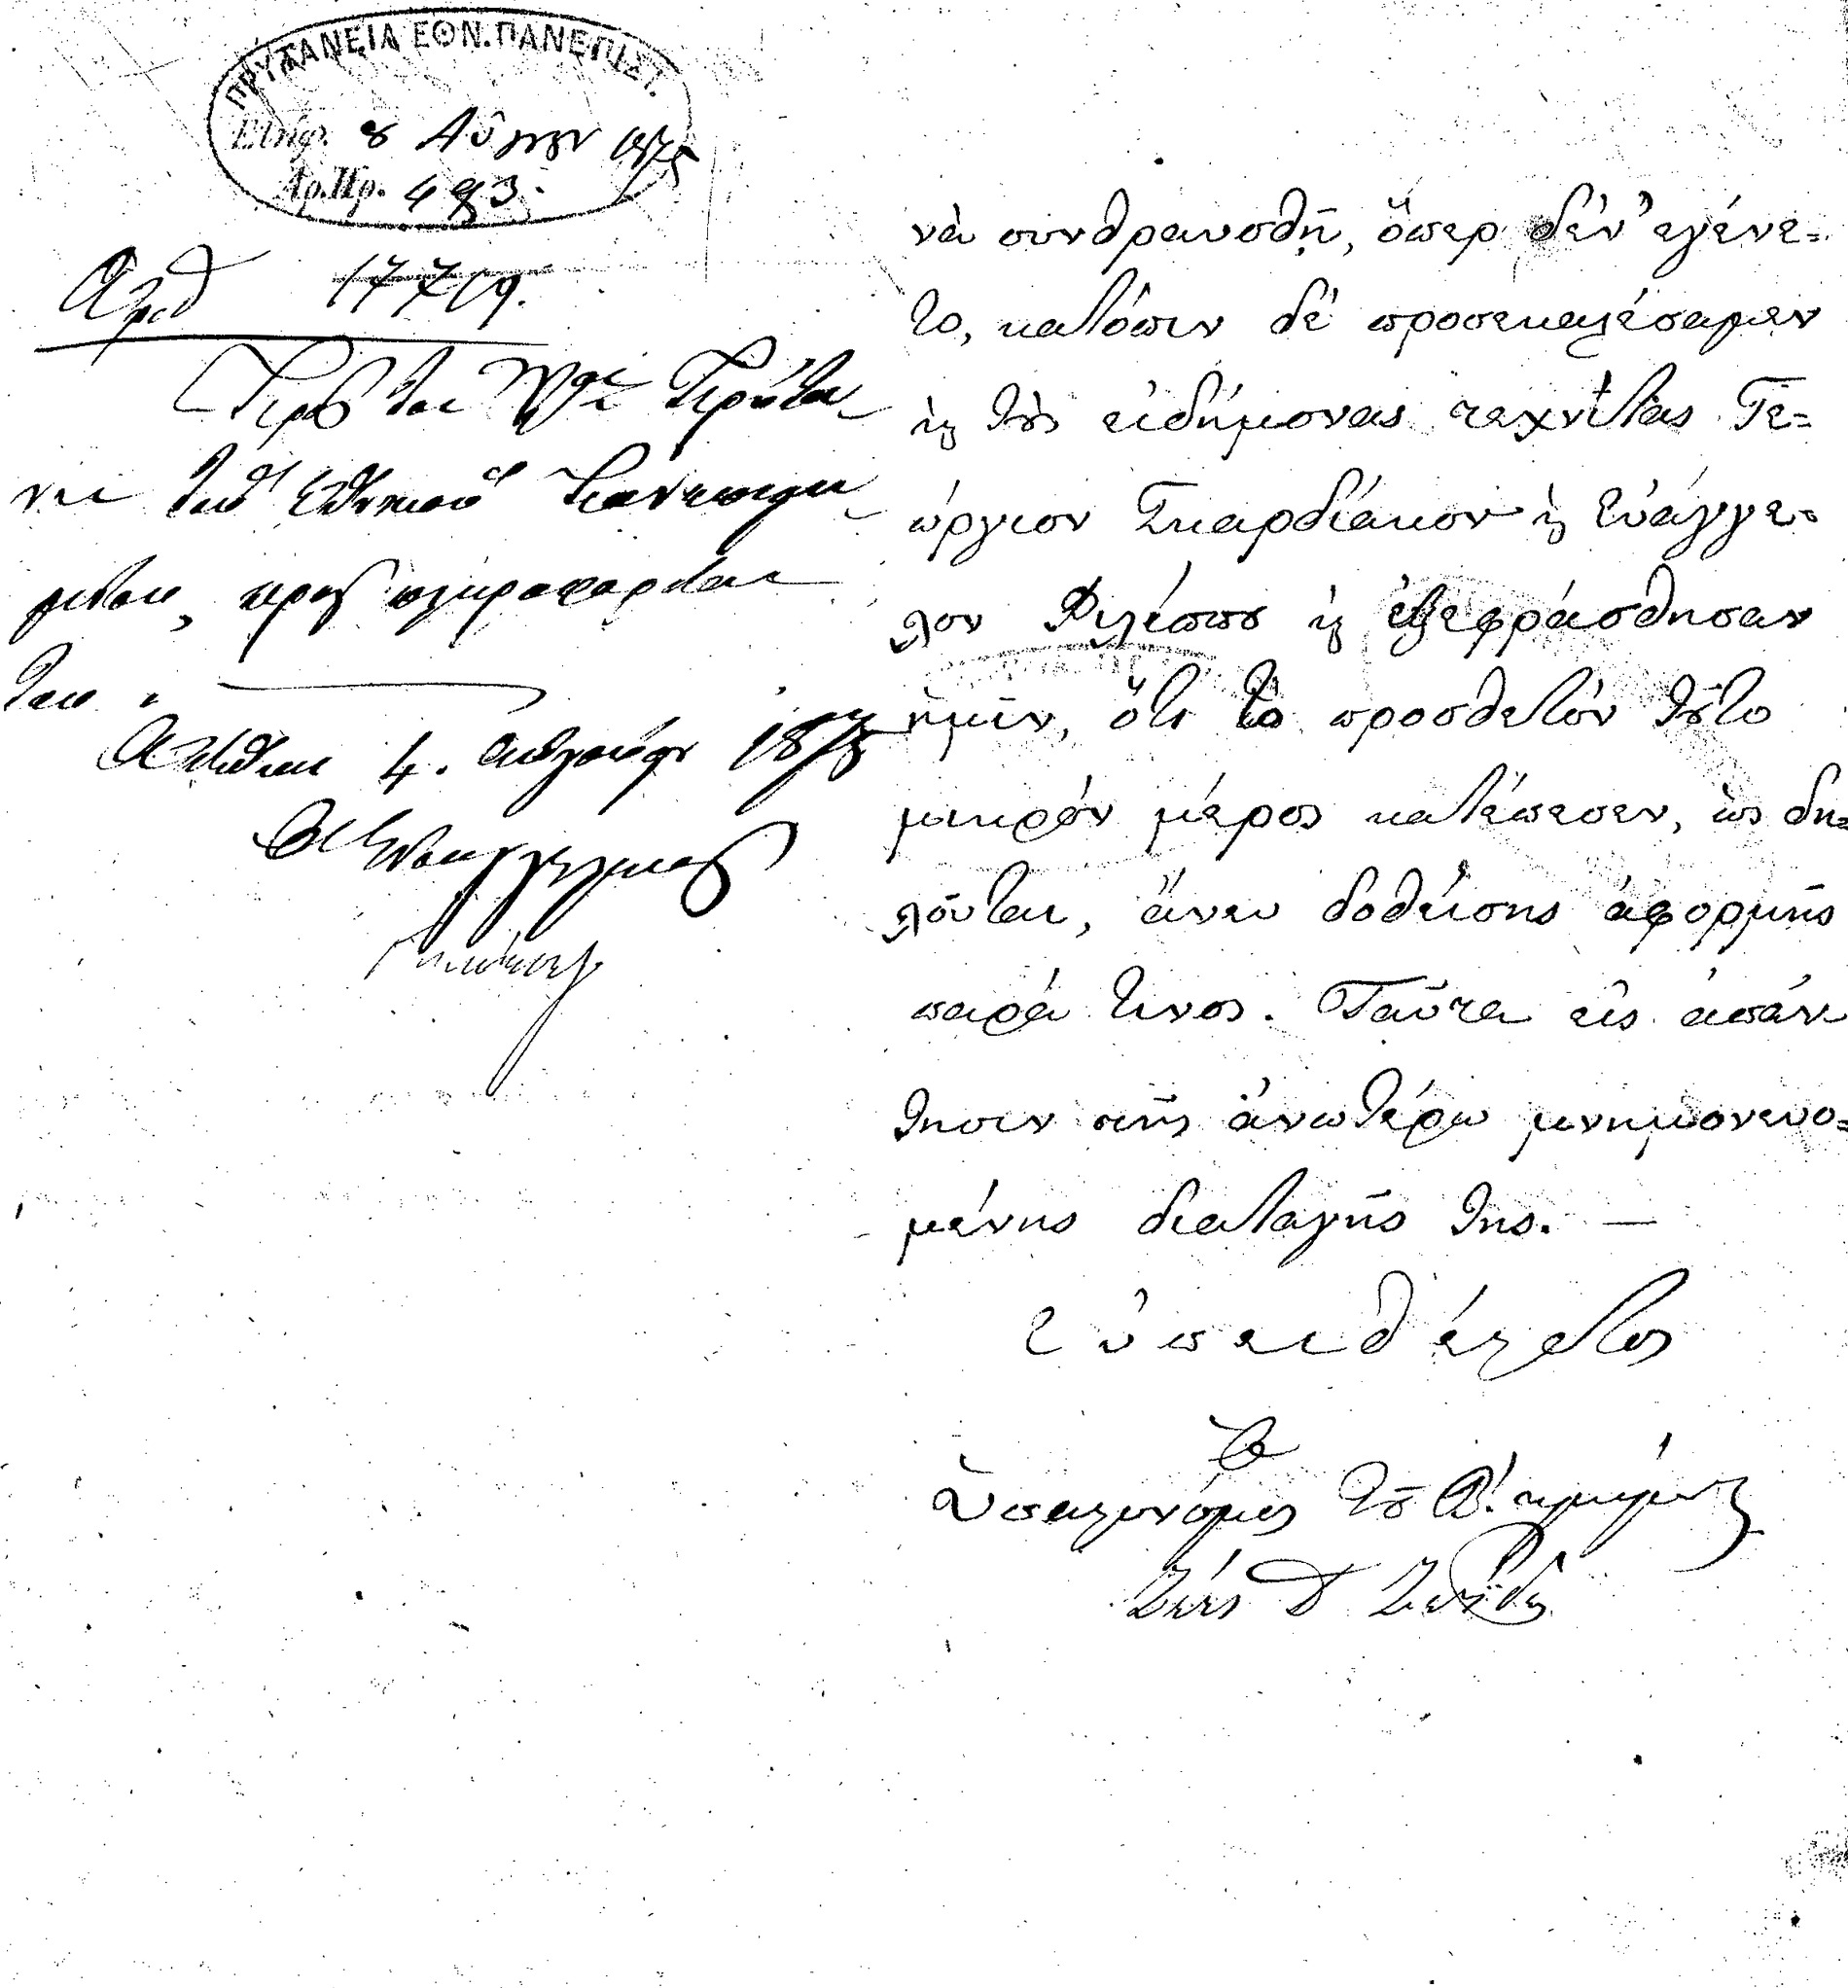 ΠΡΥΤΑΝΕΙΑ ΕΘΝ. ΠΑΝΕΠΙΣΤ.
Ἐλήφ. 8 Αὐγ 1875
Ἀρ. Πρ. 493.
Ἀριθ 17719.
Πρὸς τὸν Πρύτα-
νιν τοῦ Ἐθνικοῦ Πανεπιστη-
μίου, πρὸς πληροφορίαν
του.
4. Αὐγούστου 1875
νὰ συνθραυσθῇ, ὅπερ δὲν ἐγένε=
το, κατόπιν δὲ προσεκαλέσαμεν
κ τοὺς εἰδήμονας τεχνίτας Γε=
ώργιον Σκαρδιάκον κ Εὐάγγε=
λον Φιλίππου κ ἐξεφράσθησαν
ἡμῖν, ὅτι τὸ προσθετὸν τοῦτο
μικρὸν μέρος κατέπεσεν, ὡς δη=
λοῦται, ἄνευ δοθείσης ἀφορμῆς
παρά τινος. Ταῦτα εἰς ἀπάν
τησιν τῆς ἀνωτέρω μνημονευο=
μένης διαταγῆς της. —
Εὐπειθέστατος
Ὁ
Ὑπαστυνόμος τοῦ Α΄. τμήματος